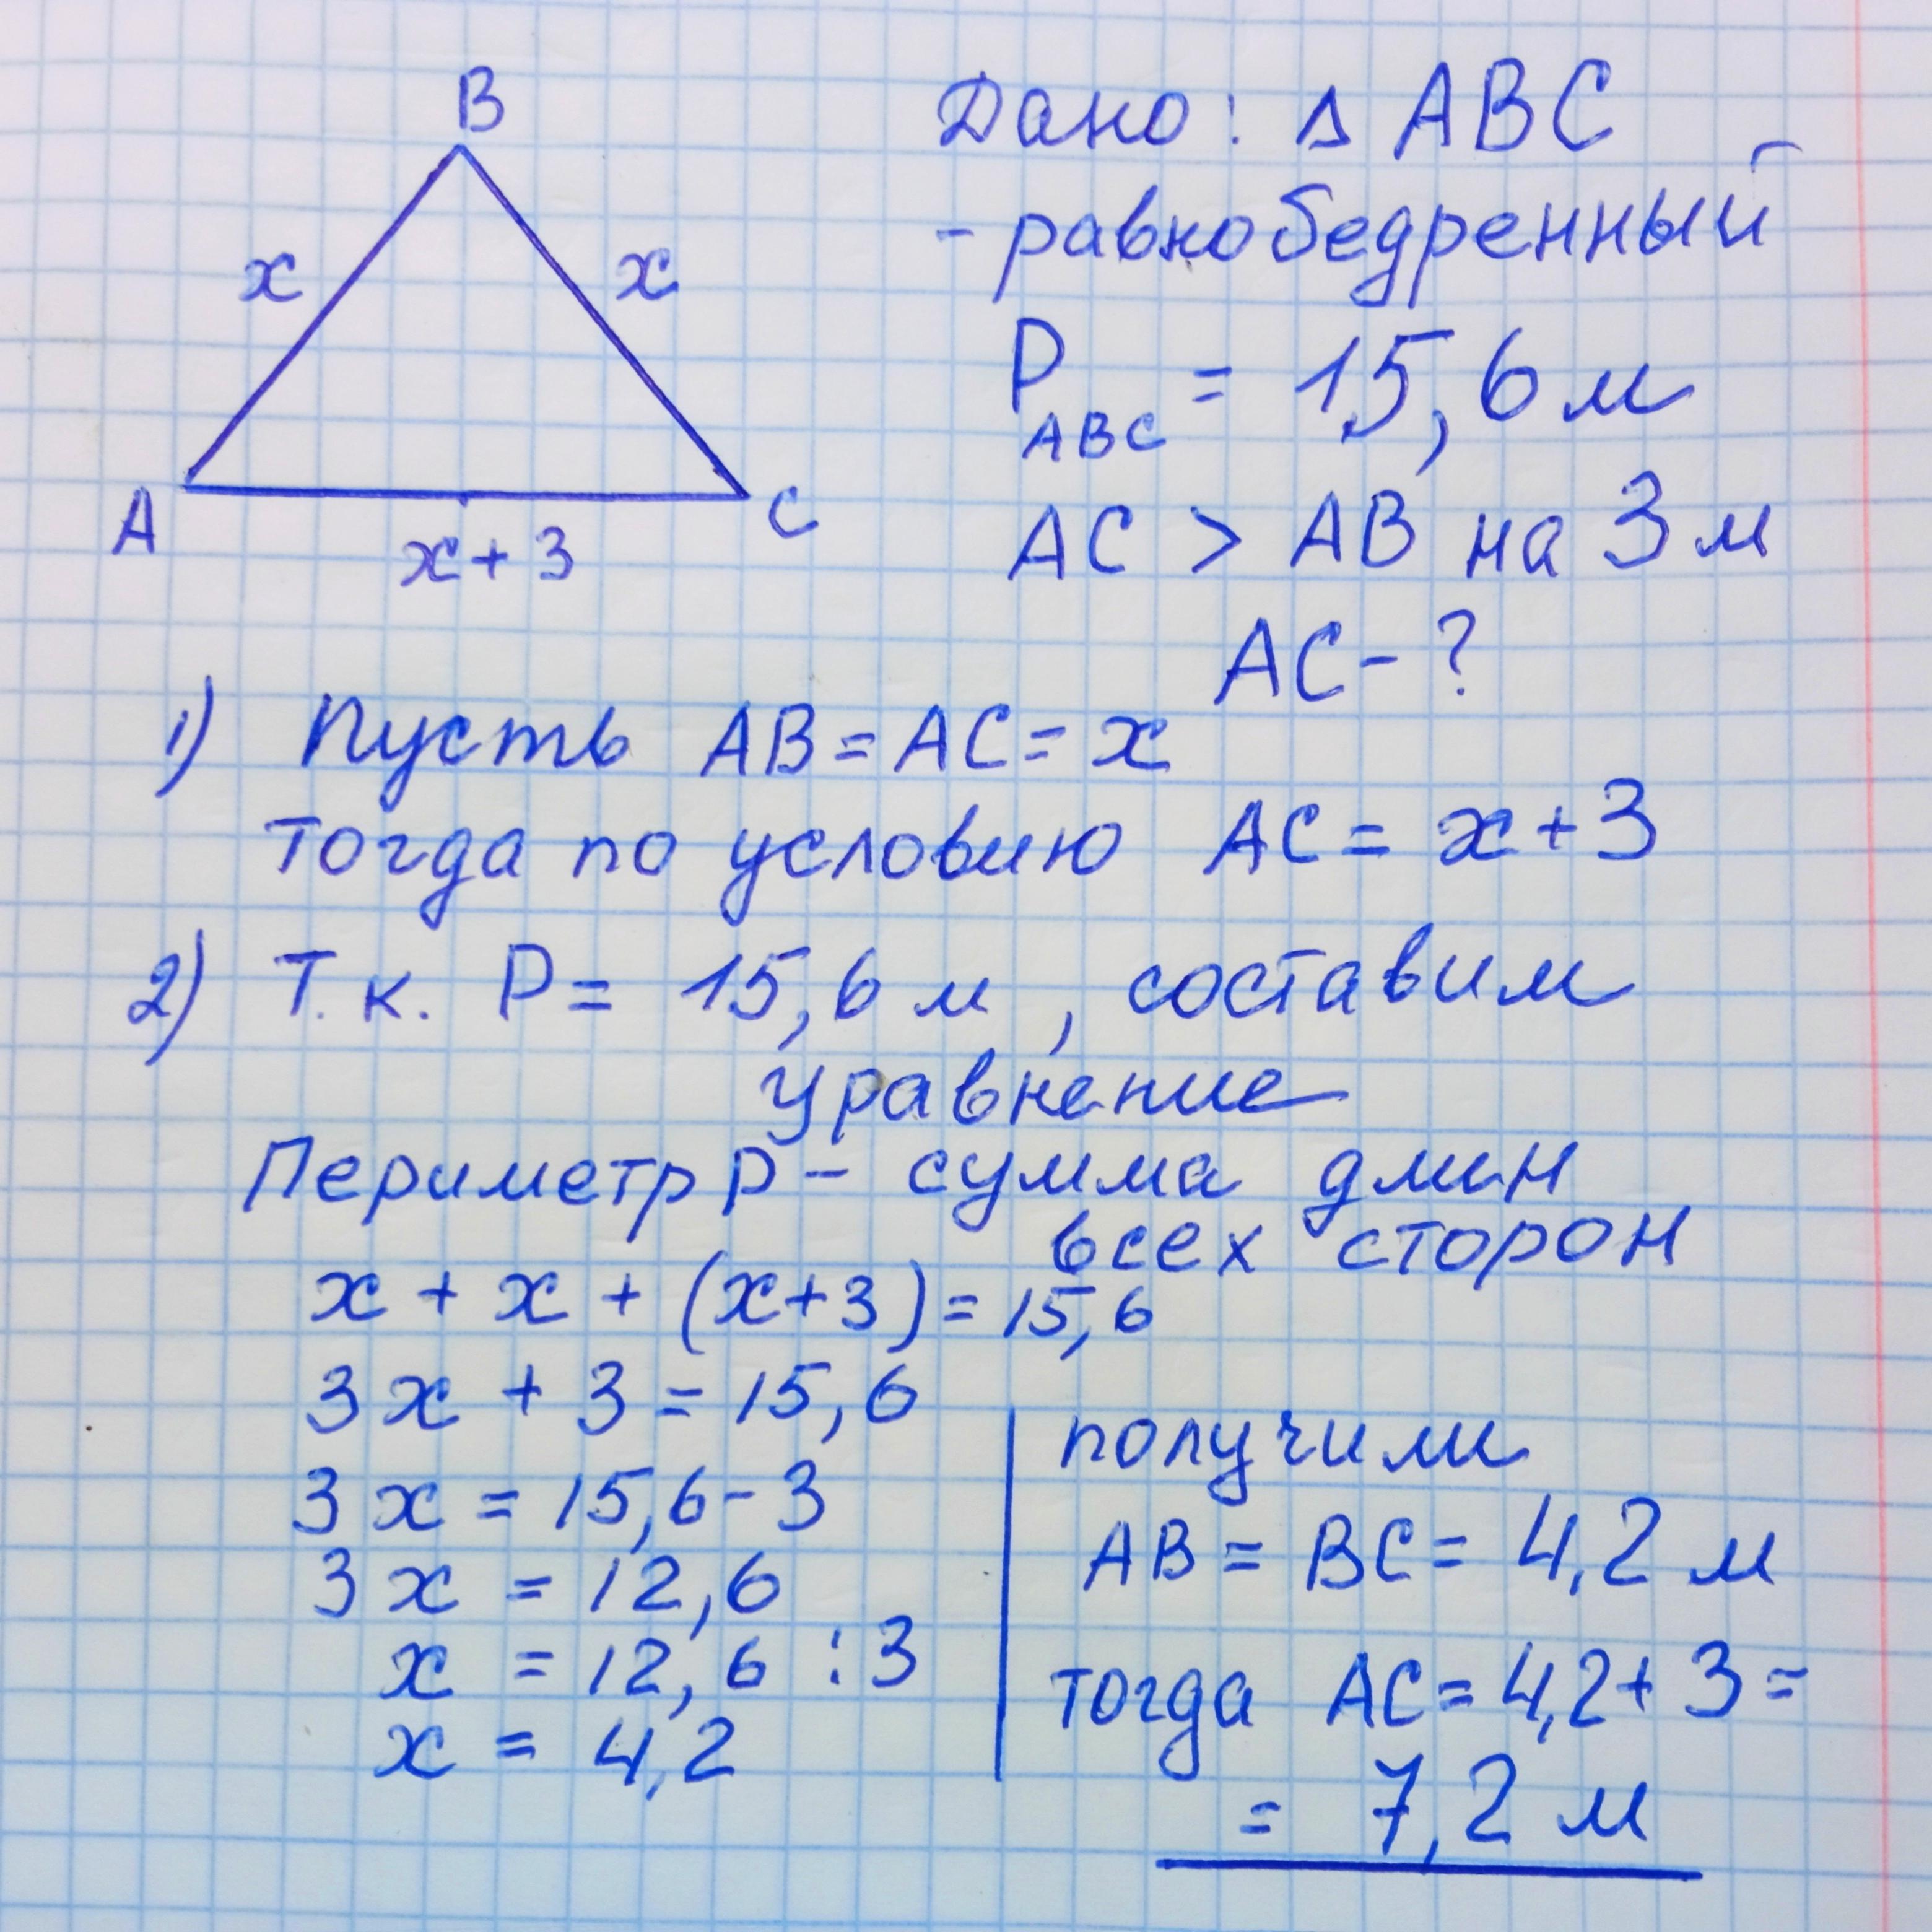 B
x
x
A
C
x+3
Дано: Δ ABC
- равнобедренный
P ABC = 15,6 м
AC > AB на 3 м
AC - ?
1) Пусть AB = AC = x
Тогда по условию AC = x + 3
2) Т.к. P = 15,6 м, составим
уравнение
Периметр P - сумма длин
всех сторон
x + x + (x+3) = 15,6
3x + 3 = 15,6
3x = 15,6 - 3
3x = 12,6
x = 12,6 : 3
x = 4,2
получим
AB = BC = 4,2 м
тогда AC = 4,2 + 3 =
= 7,2 м